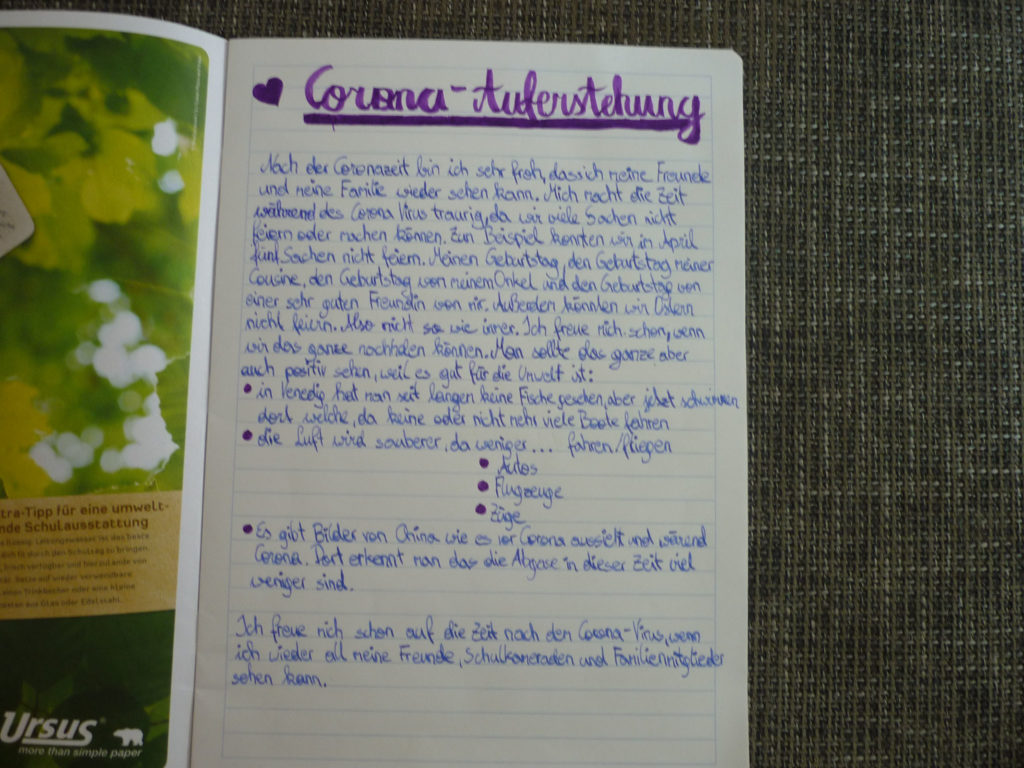 Corona-Auferstehung
Nach der Coronazeit bin ich sehr froh, dass ich meine Freunde
und meine Familie wieder sehen kann. Mich macht die Zeit
während des Corona Virus traurig, da wir viele Sachen nicht
feiern oder machen können. Zum Beispiel konnten wir in April
fünf Sachen nicht feiern. Meinen Geburtstag, den Geburtstag meiner
Cousine, den Geburtstag von meinem Onkel und den Geburtstag von
einer sehr guten Freundin von mir. Außerdem könnten wir Ostern
nicht feiern. Also nicht so wie immer. Ich freue mich schon, wenn
wir das ganze nachholen können. Man sollte das ganze aber
auch positiv sehen, weil es gut für die Umwelt ist:
• in Venedig hat man seit langen keine Fische gesehen, aber jetzt schwimmen
dort welche, da keine oder nicht mehr viele Boote fahren
• die Luft wird sauberer, da weniger... fahren/fliegen
• Autos
• Flugzeuge
• Züge
• Es gibt Bilder von China wie es vor Corona aussieht und wärend
Corona. Dort erkennt man das die Abgase in dieser Zeit viel
weniger sind.
Ich freue mich schon auf die Zeit nach den Corona-Virus, wenn
ich wieder all meine Freunde, Schulkameraden und Familienmitglieder
sehen kann.
tra-Tipp für eine umwelt-
nde Schulausstattung
Ursus
more than simple paper